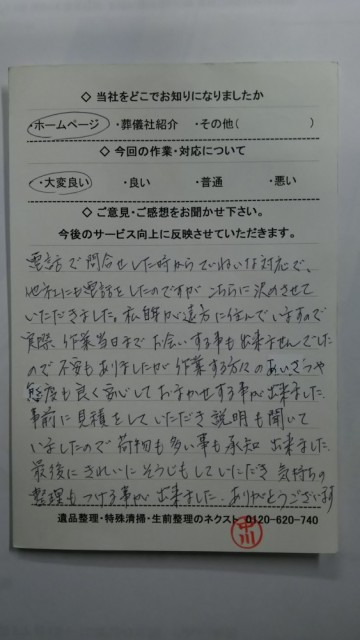 ◇ 当社をどこでお知りになりましたか
・ホームページ ・葬儀社紹介 ・その他( )
◇ 今回の作業・対応について
・大変良い ・良い ・普通 ・悪い
◇ ご意見・ご感想をお聞かせ下さい。
今後のサービス向上に反映させていただきます。
電話で問合せした時からていねいな対応で、
他社にも電話をしたのですが こちらに決めさせて
いただきました。私自身が遠方に住んでいますので
実際、作業当日までお会いする事も出来ませんでした
ので不安もありましたが作業する方々のあいさつや
態度も良く安心しておまかせする事が出来ました。
事前に見積をしていただき説明も聞いて
いましたので荷物も多い事も承知 出来ました
最後にきれいにそうじもしていただき 気持ちの
整理もつける事が出来ました。ありがとうございます
遺品整理・特殊清掃・生前整理のネクスト 0120-620-740
中川